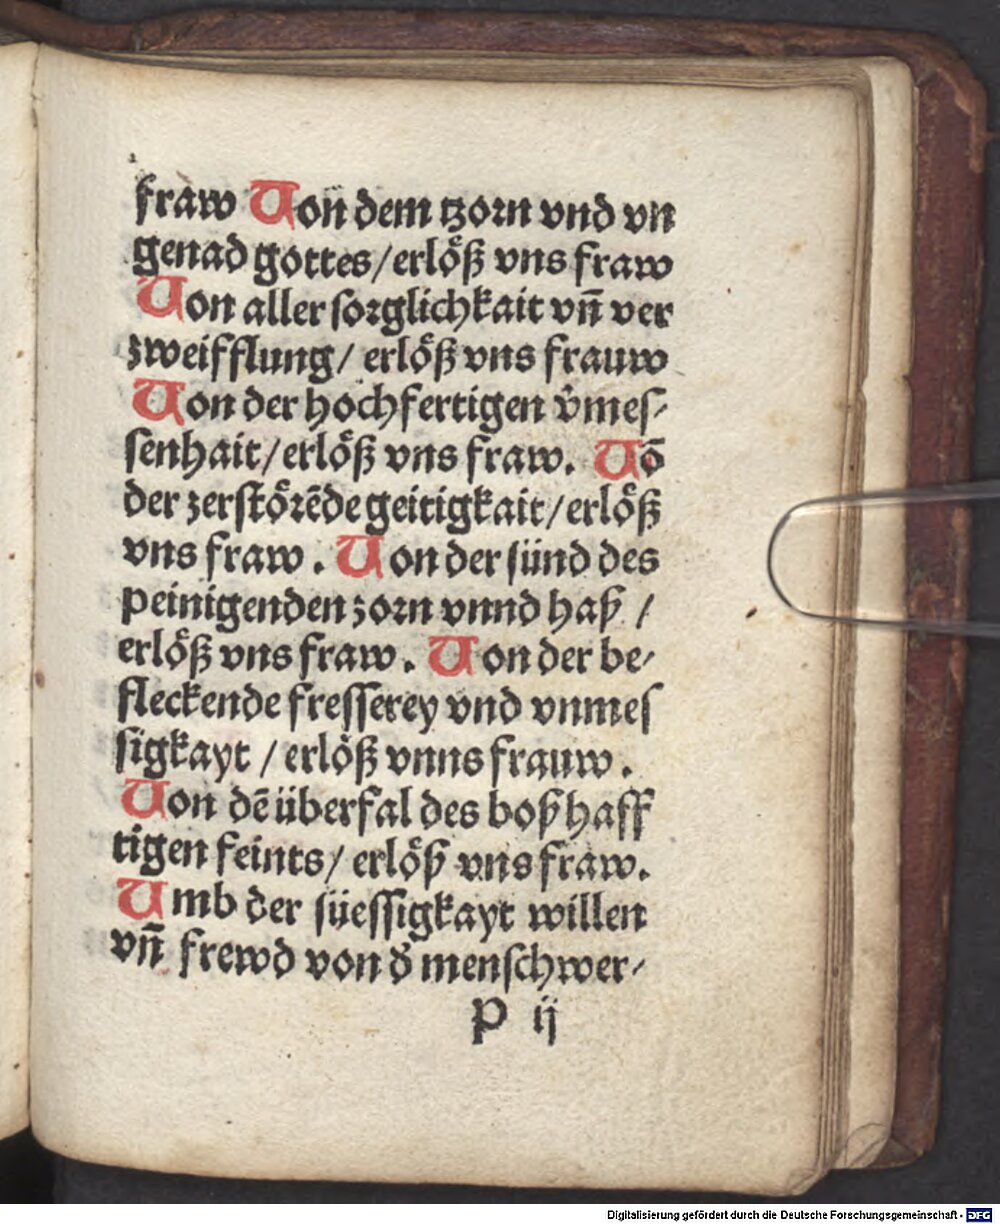 fraw Von dem tzorn vnd vn
genad gottes/erlöß vns fraw
Von aller sorglichkait vn̄ ver
zweifflung/ erlöß vns frauw
Von der hochfertigen v̉mes⸗
senhait/erlöß vns fraw. Vō
der zerstörēde geitigkait/erlöß
vns fraw. Von der sünd des
peinigenden zorn vnnd haß /
erlöß vns fraw. Von der be⸗
fleckende fresserey vnd vnmes
sigkayt / erlöß vnns frauw.
Von dē überfal des boßhaff
tigen feints/ erlöß vns fraw.
Umb der süessigkayt willen
vn̄ frewd von d̉ menschwer⸗
P ij
Digitalisierung gefördert durch die Deutsche Forschungsgemeinschaft - DFG